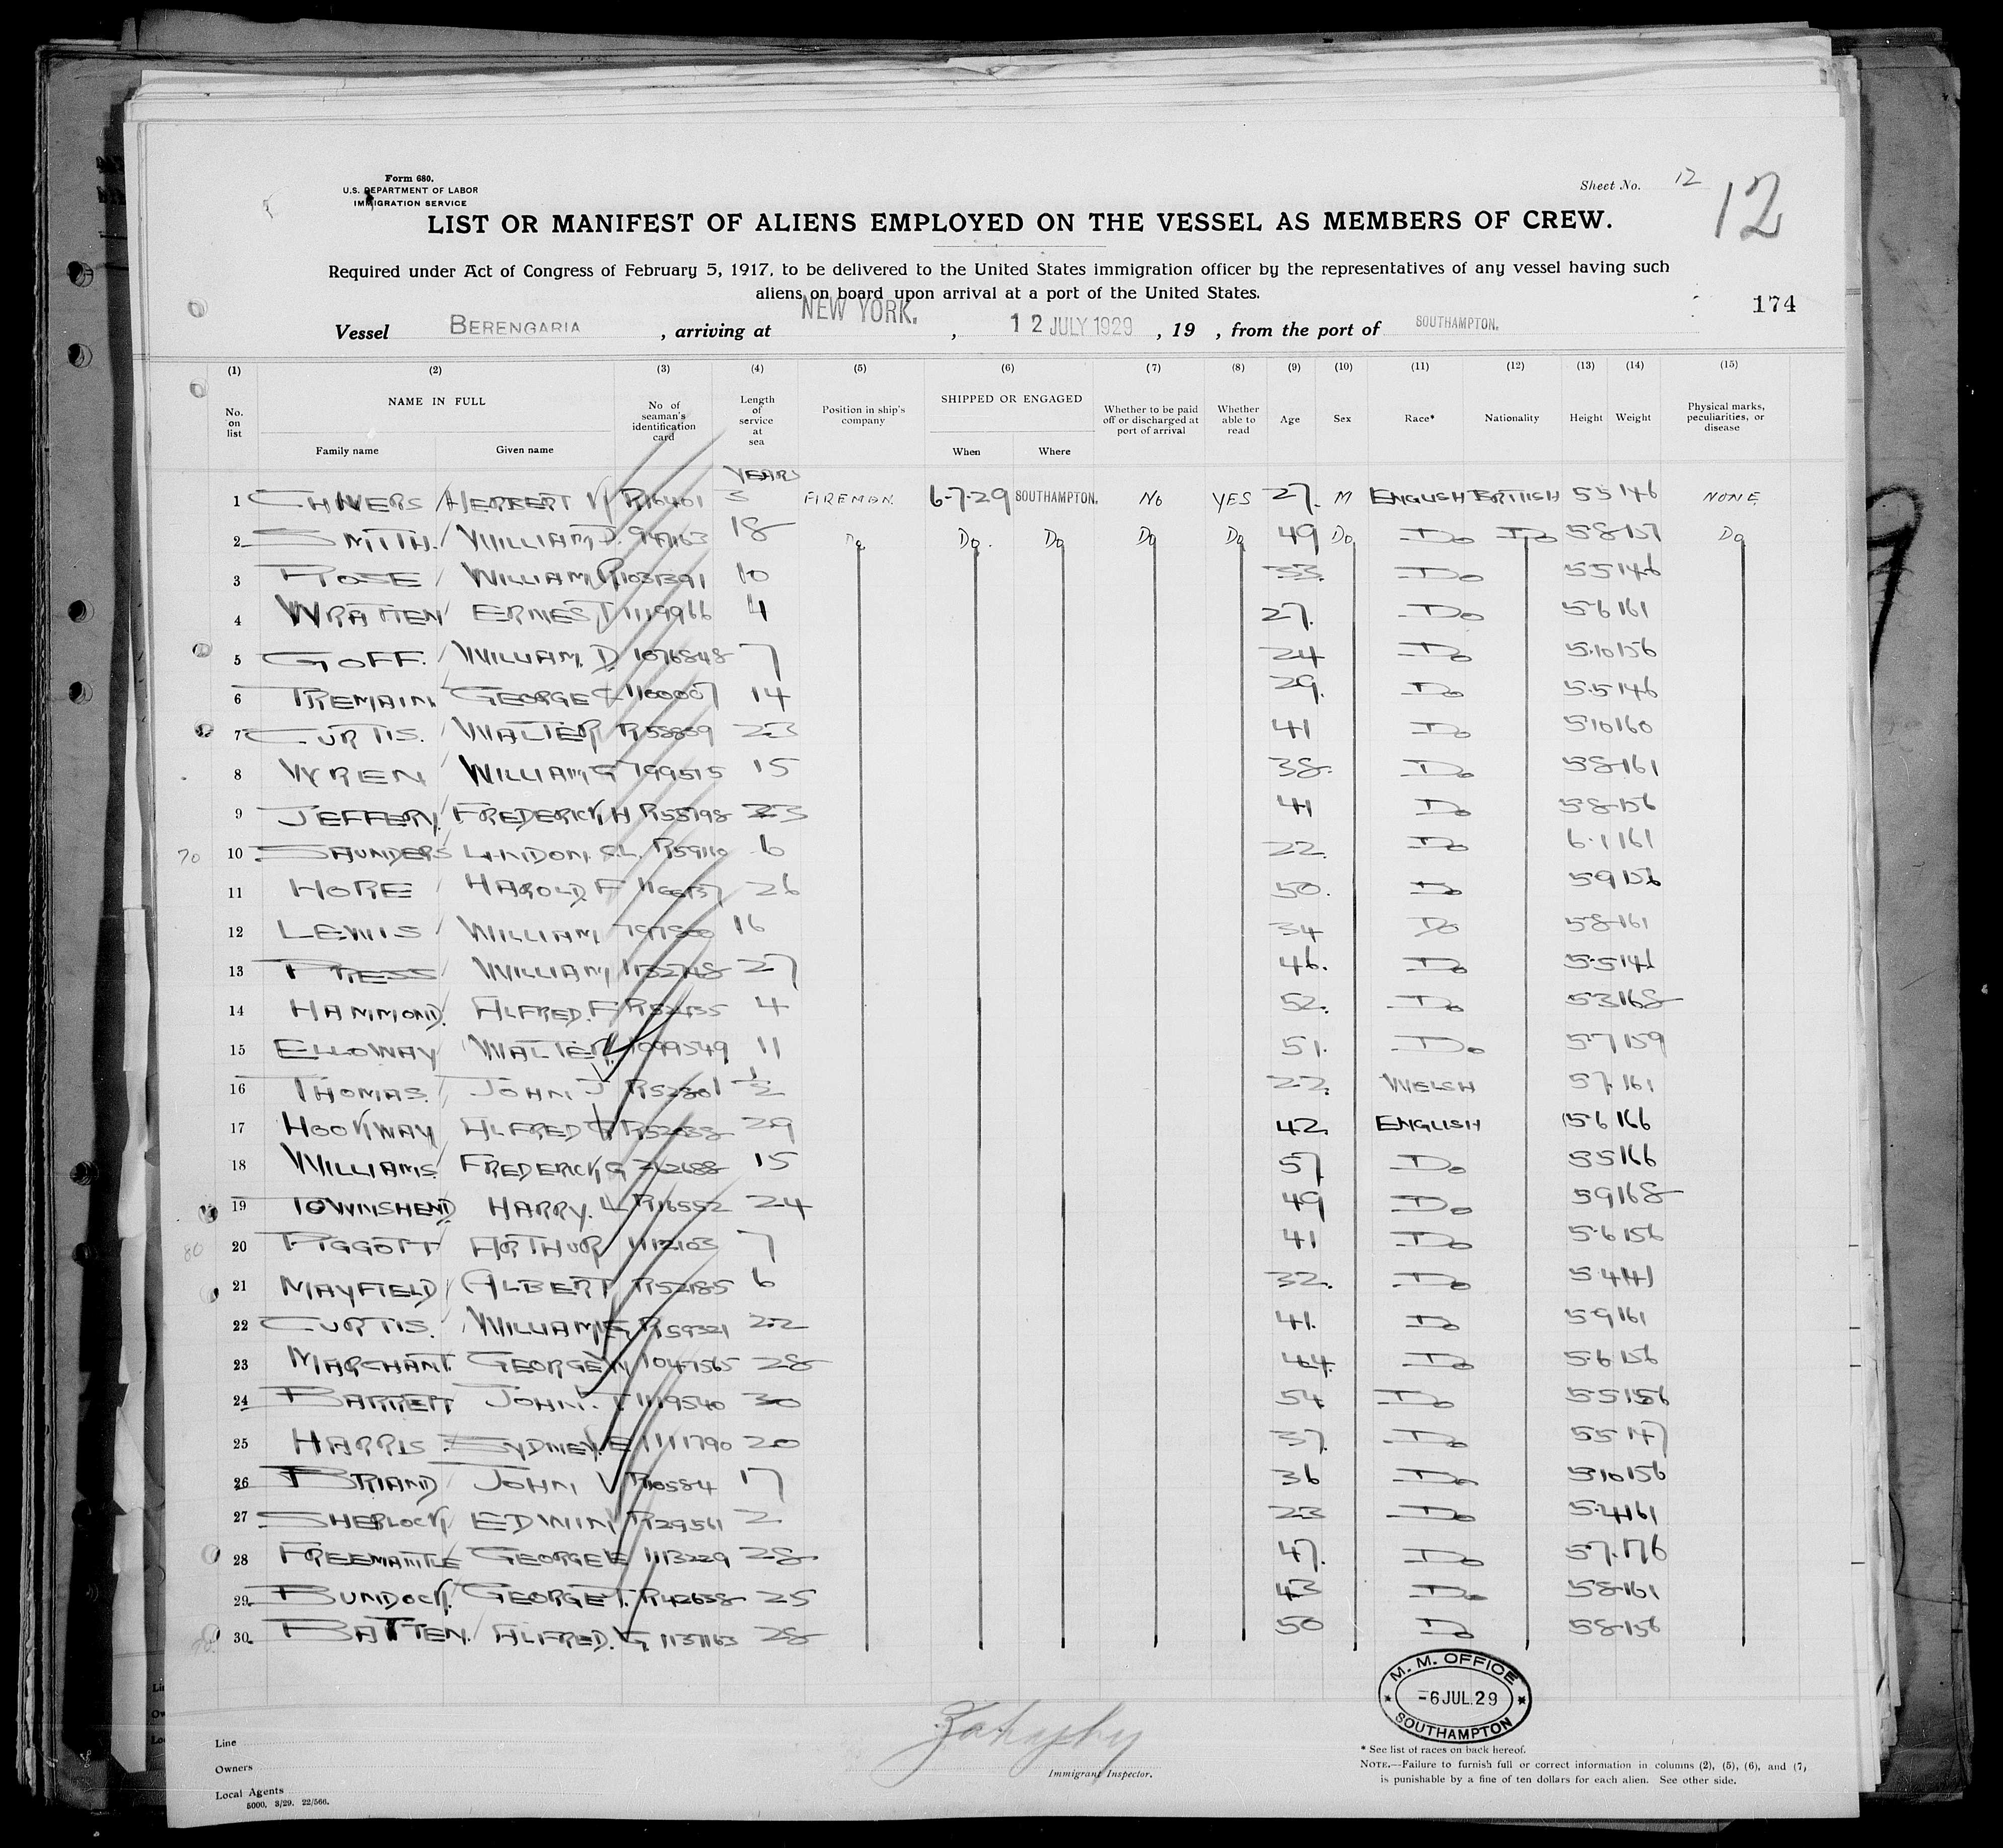 Form 680.
U.S. DEPARTMENT OF LABOR
IMMIGRATION SERVICE
Sheet No. 12
12
LIST OR MANIFEST OF ALIENS EMPLOYED ON THE VESSEL AS MEMBERS OF CREW.
Required under Act of Congress of February 5, 1917, to be delivered to the United States immigration officer by the representatives of any vessel having such
aliens on board upon arrival at a port of the United States.
174
Vessel BERENGARIA , arriving at NEW YORK. , 12 JULY 1929 , 19 , from the port of SOUTHAMPTON.
(1) (2) (3) (4) (5) (6) (7) (8) (9) (10) (11) (12) (13) (14) (15)
No. on list NAME IN FULL Family name Given name No of seaman's identification card Length of service at sea Position in ship's company SHIPPED OR ENGAGED When Where Whether to be paid off or discharged at port of arrival Whether able to read Age Sex Race* Nationality Height Weight Physical marks, peculiarities, or disease
YEARS
1 CHIVERS HERBERT W R16401 3 FIREMAN 6-7-29 SOUTHAMPTON. NO YES 27. M ENGLISH BRITISH 5 5 146 NONE
2 SMITH. WILLIAM D. 947163 18 Do Do. Do Do Do 49 Do Do Do 5 8 157 Do
3 ROSE WILLIAM R 1031391 10 33. Do 5 5 146
4 WRATTEN ERNEST 1119966 4 27. Do 5 6 161
5 GOFF. WILLIAM. D. 1076848 7 24 Do 5.10 156
6 TREMAIN GEORGE C 1100007 14 29. Do 5.5 146
7 CURTIS. WALTER R58859 23 41 Do 5 10 160
8 WREN WILLIAM G 799515 15 38. Do 5 8 161
9 JEFFERY. FREDERICK H R55798 23 41 Do 5 8 156
70 10 SAUNDERS LINDON. S.L. R59110 6 22. Do 6.1 161
11 HORE HAROLD F 26 50. Do 5 9 156
12 LEWIS WILLIAM 797300 16 34 Do 5 8 161
13 PRESS WILLIAM 1132748 27 46. Do 5.5 141
14 HAMMOND. ALFRED. F R52135 4 52. Do 5 3 168
15 ELLOWAY WALTER. 1099549 11 51. Do 5 7 159
16 THOMAS. JOHN J R52801 1/2 22. WELSH 5 7. 161
17 HOOKWAY ALFRED G 29 42. ENGLISH 5 6 166
18 WILLIAMS. FREDERICK G 262688 15 57 Do 5 5 166
19 TOWNSHEND HARRY. L R16552 24 49 Do 5 9 168
80 20 PIGGOTT ARTHUR 1112103 7 41 Do 5.6 156
21 MAYFIELD ALBERT R52185 6 32. Do 5 4 141
22 CURTIS. WILLIAM G R59321 22 41. Do 5 9 161
23 MARCHANT. GEORGE W 1047565 28 44. Do 5.6 156
24 BARRETT JOHN. T 1119540 30 54 Do 5 5 156
25 HARRIS SYDNEY. E 1111790 20 37. Do 5 5 147
26 BRIAND JOHN R10584 17 36 Do 5 10 156
27 SHERLOCK EDWIN R29561 2 23 Do 5.4 161
28 FREEMANTLE GEORGE E 1113229 28 47. Do 5 7. 176
29 BUNDOCK. GEORGE T. R42638 25 43 Do 5 8 161
30 BATTEN. ALFRED. G 1131163 28 50 Do 5 8 156
M. M. OFFICE
-6 JUL. 29
SOUTHAMPTON
Line
Owners
Local Agents
5000. 3/29. 22/566.
Immigrant Inspector.
* See list of races on back hereof.
NOTE.—Failure to furnish full or correct information in columns (2), (5), (6), and (7,
is punishable by a fine of ten dollars for each alien. See other side.